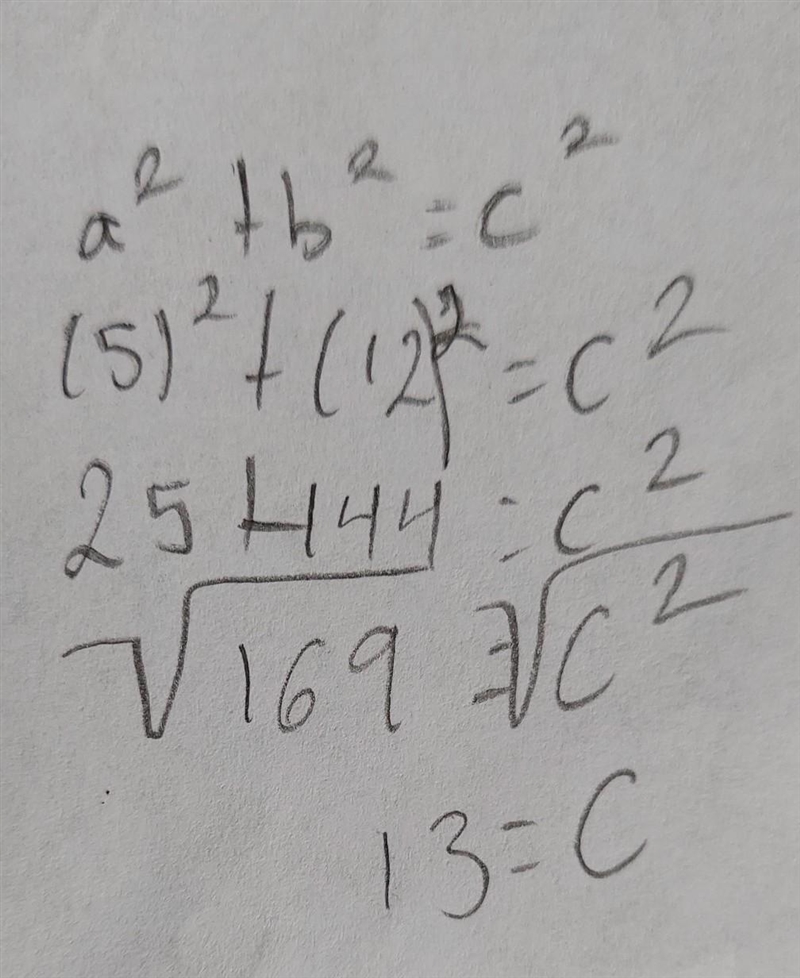 a² + b² = c²
(5)² + (12)² = c²
25 + 144 = c²
√169 = √c²
13 = c